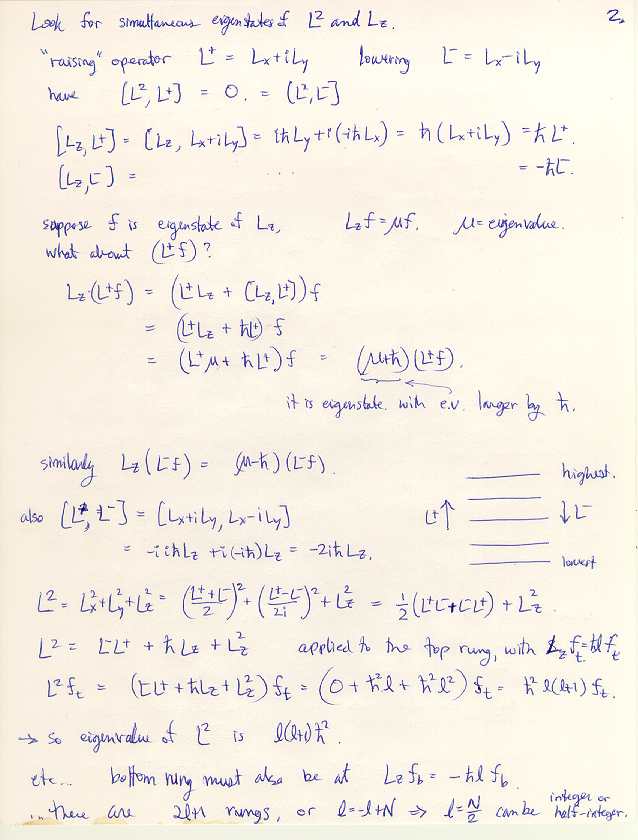 Look for simultaneous eigenstates of L² and Lz.
2.
"raising" operator L⁺ = Lx+iLy lowering L⁻ = Lx-iLy
have [L², L⁺] = 0. = [L², L⁻]
[Lz, L⁺] = [Lz, Lx+iLy] = iħLy+i(-iħLx) = ħ(Lx+iLy) = ħL⁺.
[Lz, L⁻] = .... = -ħL⁻.
suppose f is eigenstate of Lz, Lzf = μf. μ = eigenvalue.
what about (L⁺f)?
Lz(L⁺f) = (L⁺Lz + [Lz,L⁺])f
= (L⁺Lz + ħL⁺) f
= (L⁺μ + ħL⁺)f = (μ+ħ)(L⁺f).
it is eigenstate with e.v. larger by ħ.
similarly Lz(L⁻f) = (μ-ħ)(L⁻f).
highest.
also [L⁺, L⁻] = [Lx+iLy, Lx-iLy]
L⁺↑ ↓L⁻
= -iiħLz +i(-iħ)Lz = -2iħLz.
lowest
L² = Lx²+Ly²+Lz² = ((L⁺+L⁻)/2)² + ((L⁺-L⁻)/2i)² + Lz² = ½(L⁺L⁻+L⁻L⁺) + Lz².
L² = L⁻L⁺ + ħLz + Lz² applied to the top rung, with Lz f_t = ħl f_t
L² f_t = (L⁻L⁺ + ħLz + Lz²) f_t = (0 + ħ²l + ħ²l²) f_t = ħ² l(l+1) f_t.
→ so eigenvalue of L² is l(l+1)ħ².
etc... bottom rung must also be at Lz f_b = -ħl f_b
... there are 2l+1 rungs, or l = -l+N ⇒ l = N/2 can be integer or half-integer.